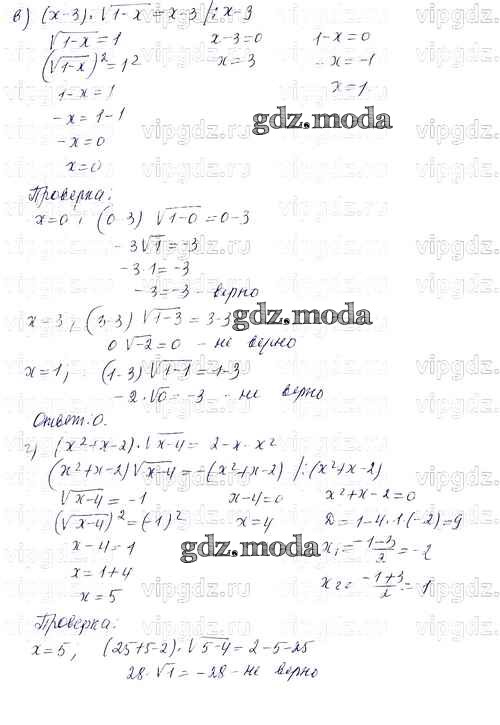 в) (x-3)·√1-x = x-3 /: x-3
√1-x = 1 x-3=0 1-x=0
(√1-x)² = 1² x=3 -x=-1
1-x=1 x=1
-x=1-1
-x=0
x=0
Проверка:
x=0, (0-3) √1-0 = 0-3
-3√1 = -3
-3·1 = -3
-3=-3 - верно
x=3, (3-3) √1-3 = 3-3
0√-2=0 - не верно
x=1, (1-3)√1-1=1-3
-2·√0=-3 - не верно
Ответ: 0.
г) (x²+x-2)·√x-4 = 2-x-x²
(x²+x-2)√x-4 = -(x²+x-2) /:(x²+x-2)
√x-4 = -1 x-4=0 x²+x-2=0
(√x-4)² = (-1)² x=4 D=1-4·1·(-2)=9
x-4=1 x₁=-1-3/2=-2
x=1+4 x₂=-1+3/2=1
x=5
Проверка:
x=5, (25+5-2)·√5-4=2-5-25
28·√1=-28 - не верно
gdz.moda
gdz.moda
gdz.moda
vipgdz.ru